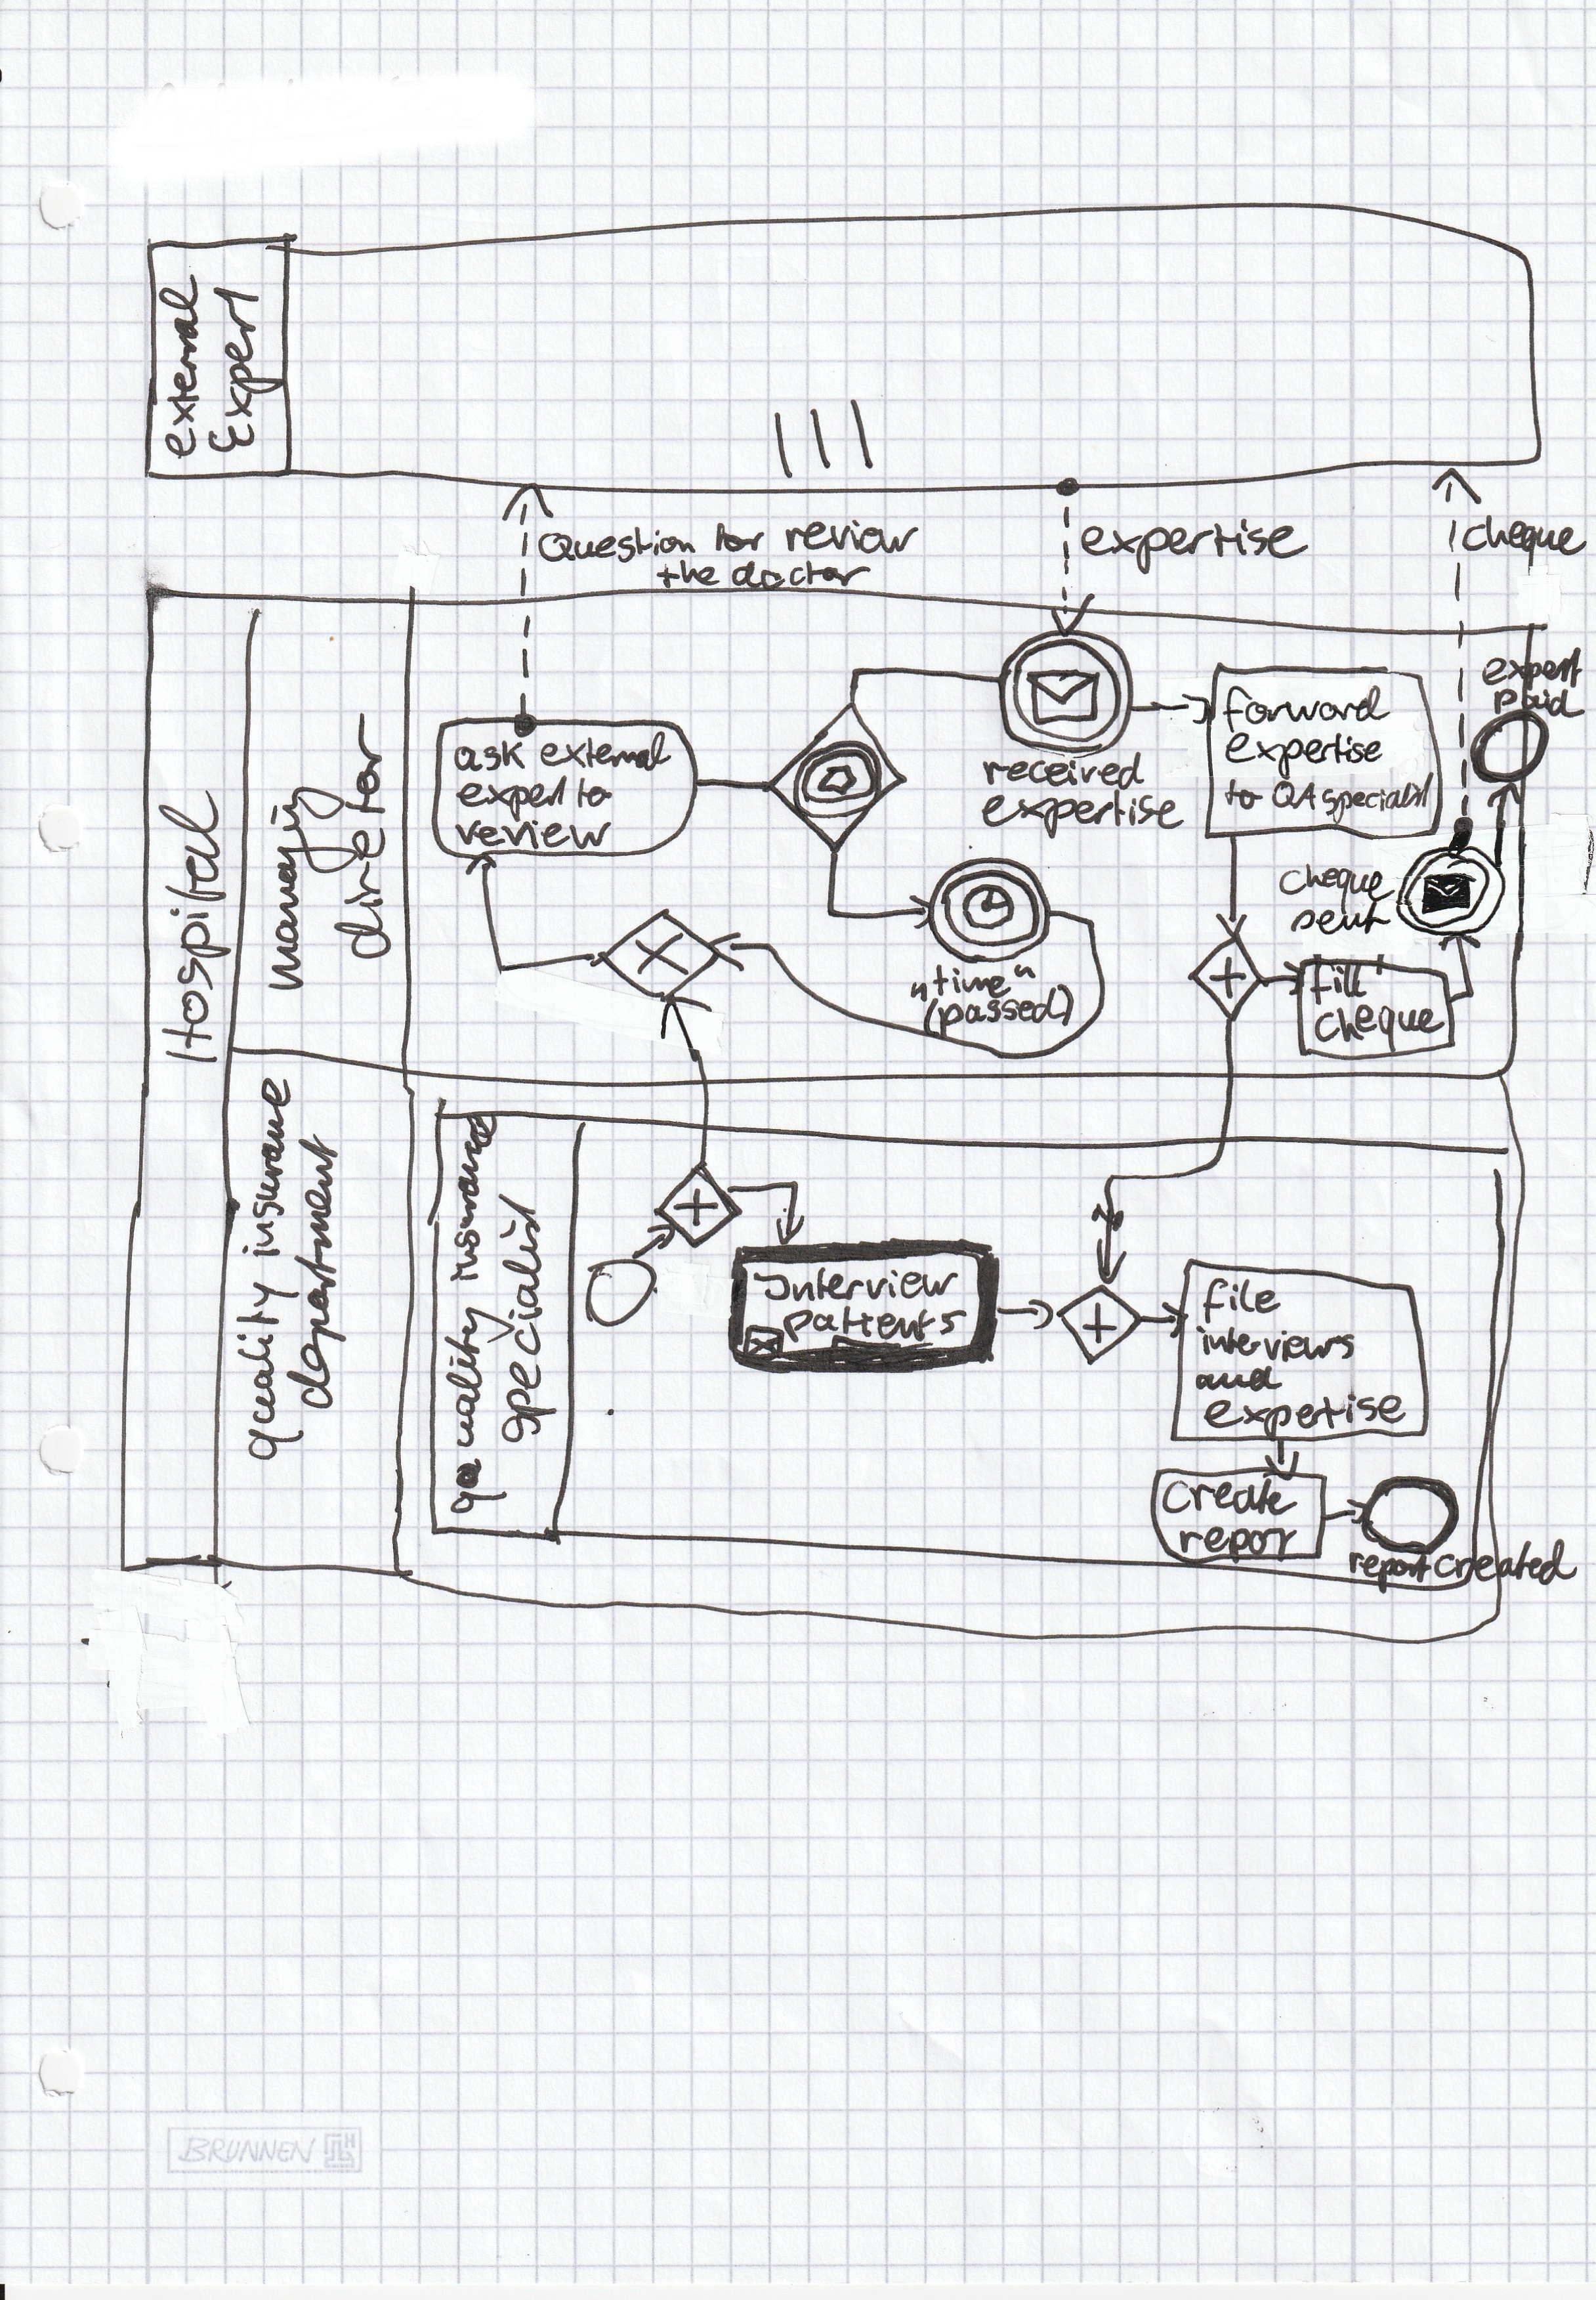 external
Expert
Question for review
the doctor
expertise
cheque
Hospital
managing
director
ask external
expert to
review
received
expertise
forward
expertise
to QA specialist
expert
paid
cheque
sent
"time"
(passed)
fill
cheque
quality insurance
department
quality insurance
specialist
Interview
patients
file
interviews
and
expertise
create
repor
report created
BRUNNEN